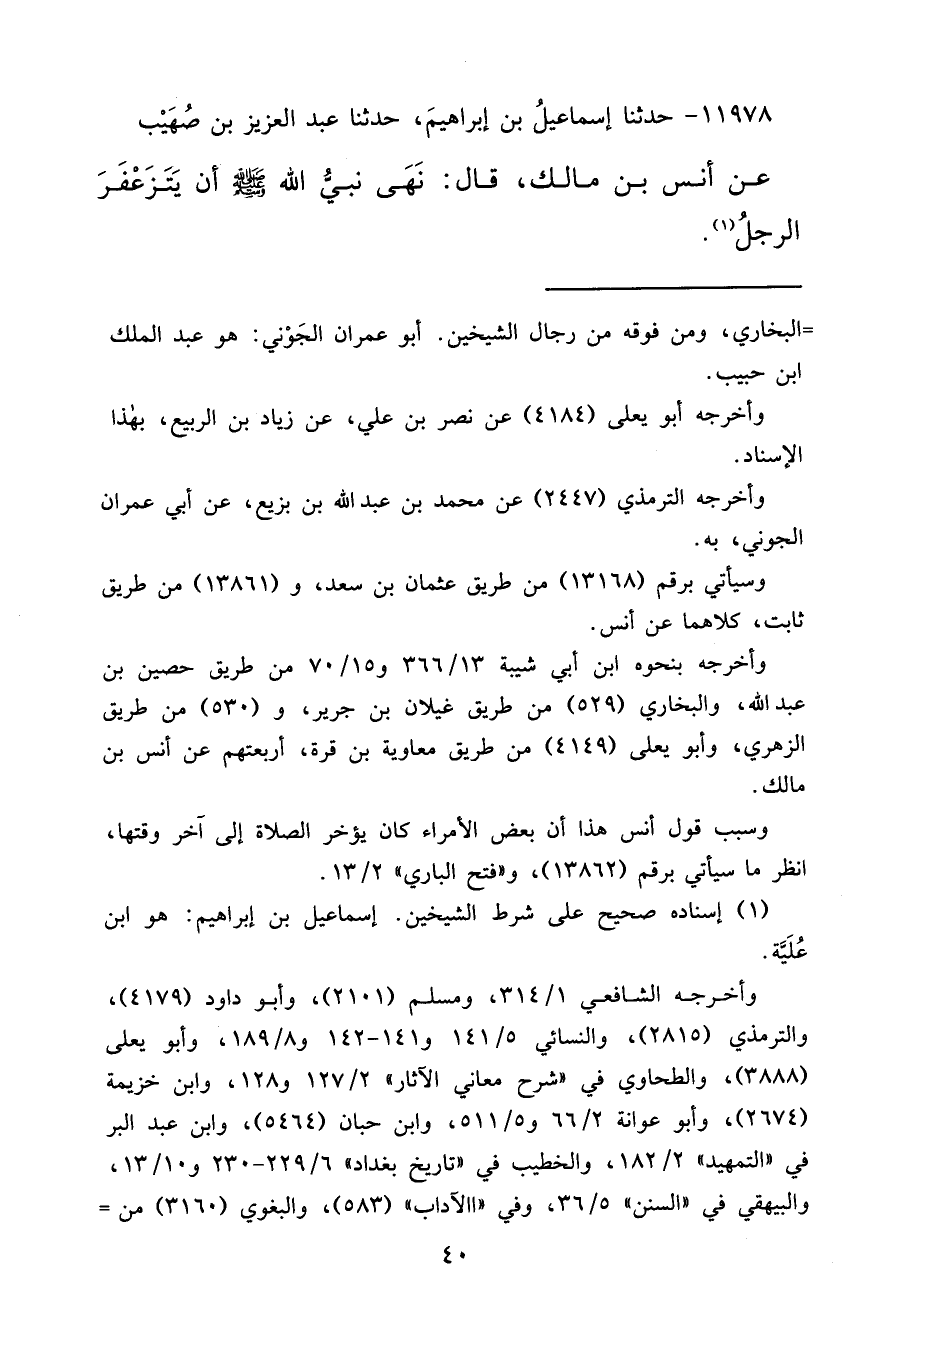 ١١٩٧٨- حدثنا إسماعيلُ بن إبراهيمَ، حدثنا عبد العزيز بن صُهَيْب
عن أنس بن مالك، قال: نَهَى نبيُّ الله ﷺ أن يَتَزَعْفَرَ
الرجلُ(١).
=البخاري، ومن فوقه من رجال الشيخين. أبو عمران الجَوْني: هو عبد الملك
ابن حبيب.
وأخرجه أبو يعلى (٤١٨٤) عن نصر بن علي، عن زياد بن الربيع، بهٰذا
الإسناد.
وأخرجه الترمذي (٢٤٤٧) عن محمد بن عبد الله بن بزيع، عن أبي عمران
الجوني، به.
وسيأتي برقم (١٣١٦٨) من طريق عثمان بن سعد، و (١٣٨٦١) من طريق
ثابت، كلاهما عن أنس.
وأخرجه بنحوه ابن أبي شيبة ٣٦٦/١٣ و٧٠/١٥ من طريق حصين بن
عبد الله، والبخاري (٥٢٩) من طريق غيلان بن جرير، و (٥٣٠) من طريق
الزهري، وأبو يعلى (٤١٤٩) من طريق معاوية بن قرة، أربعتهم عن أنس بن
مالك.
وسبب قول أنس هذا أن بعض الأمراء كان يؤخر الصلاة إلى آخر وقتها،
انظر ما سيأتي برقم (١٣٨٦٢)، و«فتح الباري» ١٣/٢.
(١) إسناده صحيح على شرط الشيخين. إسماعيل بن إبراهيم: هو ابن
عُلَيَّة.
وأخرجه الشافعي ٣١٤/١، ومسلم (٢١٠١)، وأبو داود (٤١٧٩)،
والترمذي (٢٨١٥)، والنسائي ١٤١/٥ و١٤١-١٤٢ و١٨٩/٨، وأبو يعلى
(٣٨٨٨)، والطحاوي في «شرح معاني الآثار» ١٢٧/٢ و١٢٨، وابن خزيمة
(٢٦٧٤)، وأبو عوانة ٦٦/٢ و٥١١/٥، وابن حبان (٥٤٦٤)، وابن عبد البر
في «التمهيد» ١٨٢/٢، والخطيب في «تاريخ بغداد» ٢٢٩/٦-٢٣٠ و١٣/١٠،
والبيهقي في «السنن» ٣٦/٥، وفي «االآداب» (٥٨٣)، والبغوي (٣١٦٠) من =
٤٠